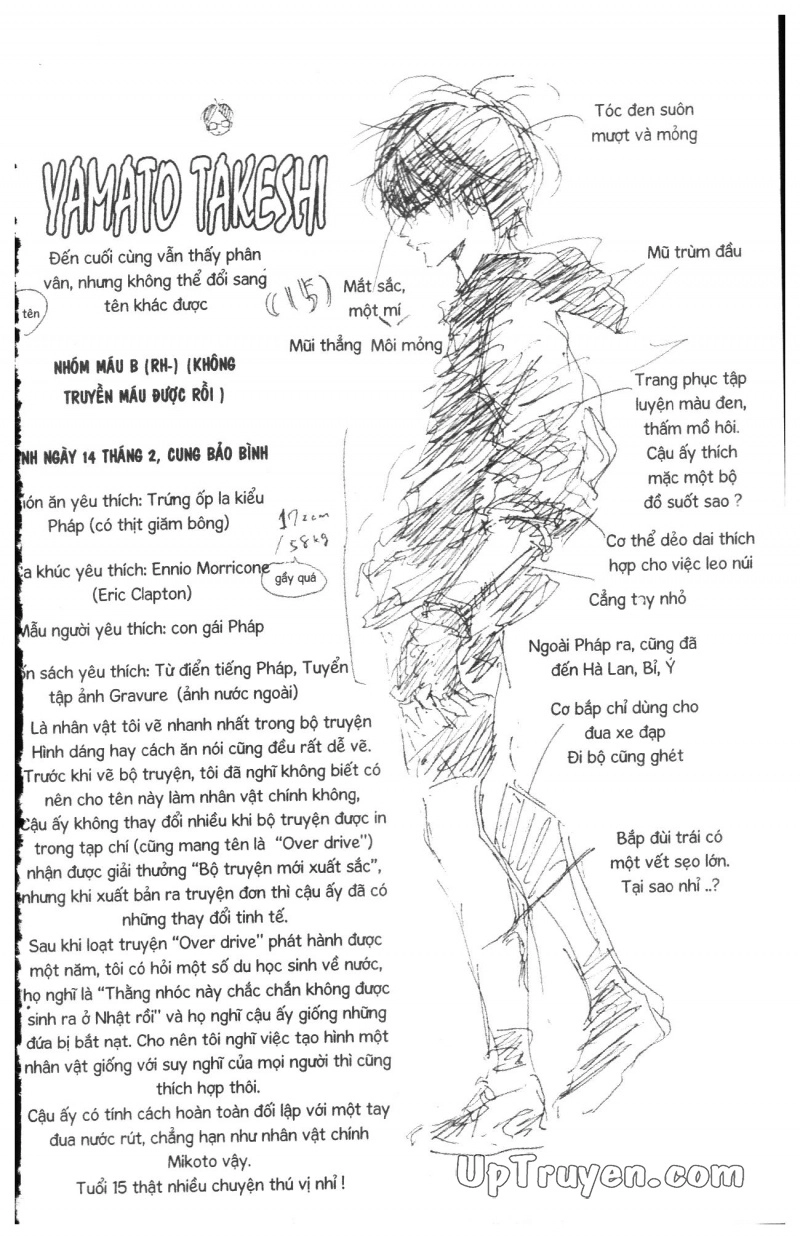 YAMATO TAKESHI
Đến cuối cùng vẫn thấy phân
vân, nhưng không thể đổi sang
tên khác được
tên
(15)
NHÓM MÁU B (RH-) (KHÔNG
TRUYỀN MÁU ĐƯỢC RỒI )
NH NGÀY 14 THÁNG 2, CUNG BẢO BÌNH
ón ăn yêu thích: Trứng ốp la kiểu
Pháp (có thịt giăm bông)
172cm
/58kg
gầy quá
a khúc yêu thích: Ennio Morricone
(Eric Clapton)
Mẫu người yêu thích: con gái Pháp
ốn sách yêu thích: Từ điển tiếng Pháp, Tuyển
tập ảnh Gravure (ảnh nước ngoài)
Là nhân vật tôi vẽ nhanh nhất trong bộ truyện
Hình dáng hay cách ăn nói cũng đều rất dễ vẽ.
Trước khi vẽ bộ truyện, tôi đã nghĩ không biết có
nên cho tên này làm nhân vật chính không,
Cậu ấy không thay đổi nhiều khi bộ truyện được in
trong tạp chí (cũng mang tên là “Over drive”)
nhận được giải thưởng “Bộ truyện mới xuất sắc”,
nhưng khi xuất bản ra truyện đơn thì cậu ấy đã có
những thay đổi tinh tế.
Sau khi loạt truyện “Over drive” phát hành được
một năm, tôi có hỏi một số du học sinh về nước,
họ nghĩ là “Thằng nhóc này chắc chắn không được
sinh ra ở Nhật rồi” và họ nghĩ cậu ấy giống những
đứa bị bắt nạt. Cho nên tôi nghĩ việc tạo hình một
nhân vật giống với suy nghĩ của mọi người thì cũng
thích hợp thôi.
Cậu ấy có tính cách hoàn toàn đối lập với một tay
đua nước rút, chẳng hạn như nhân vật chính
Mikoto vậy.
Tuổi 15 thật nhiều chuyện thú vị nhỉ !
Tóc đen suôn
mượt và mỏng
Mũ trùm đầu
Mắt sắc,
một mí
Mũi thẳng Môi mỏng
Trang phục tập
luyện màu đen,
thấm mồ hôi.
Cậu ấy thích
mặc một bộ
đồ suốt sao ?
Cơ thể dẻo dai thích
hợp cho việc leo núi
Cẳng tay nhỏ
Ngoài Pháp ra, cũng đã
đến Hà Lan, Bỉ, Ý
Cơ bắp chỉ dùng cho
đua xe đạp
Đi bộ cũng ghét
Bắp đùi trái có
một vết sẹo lớn.
Tại sao nhỉ ..?
UpTruyen.com